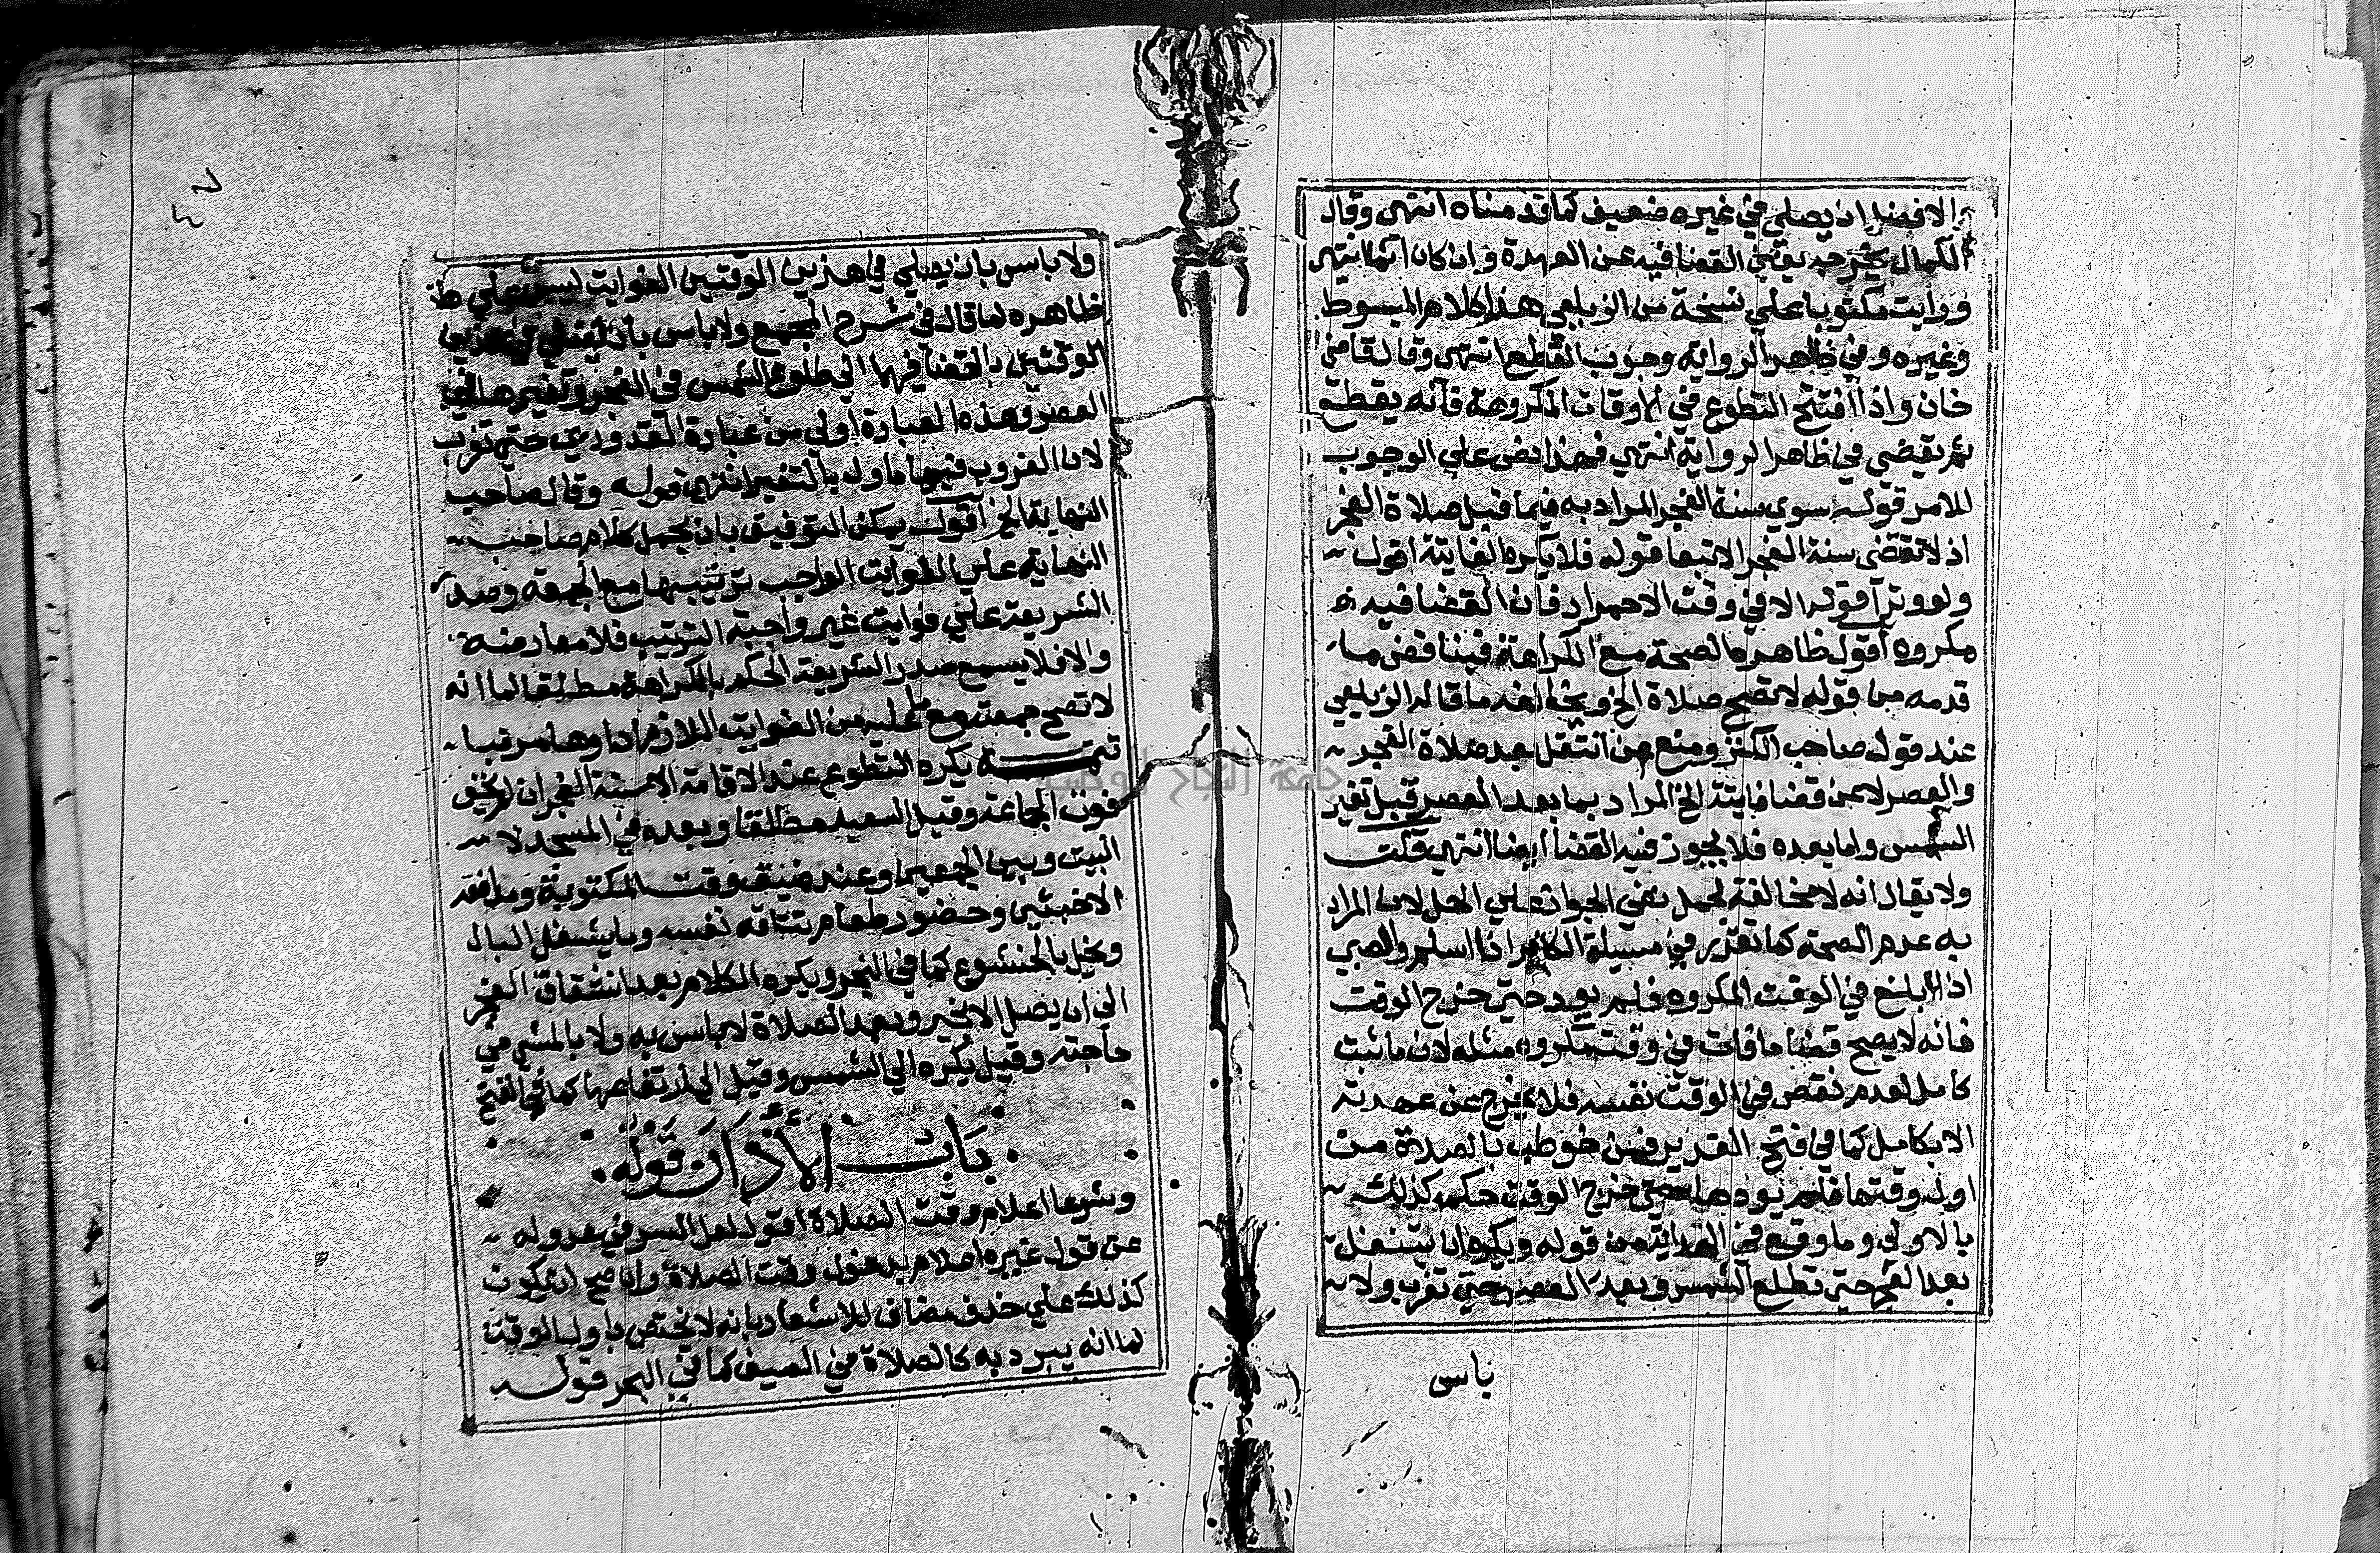 والافضل ان يصلي في غيره ضعيف كما قدمناه انتهى وقال
الكمال يخرج به القضا فيه عن العهدة وان كان اثما انتهى
ورايت مكتوبا علي نسخة من الزيلعي هذا كلام المبسوط
وغيره وفي ظاهر الرواية وجوب القطع انتهى وقال قاضي
خان واذا افتتح التطوع في الاوقات المكروهة فانه يقطع
ثم يقضي في ظاهر الرواية انتهي فهذا نص علي الوجوب
للامر قوله سوي سنة الفجر المراد به فيما قبل صلاة الفجر
اذ لا تقضى سنة الفجر الا تبعا قوله فلا يكره الفايتة اقول
ولو وترا قوله الا في وقت الاحمرار فان القضا فيه
مكروه اقول ظاهره الصحة مع الكراهة فيناقض ما
قدمه من قوله لا تصح صلاة الخ ويخالفه ما قاله الزيلعي
عند قول صاحب الكنز ومنع عن التنفل بعد صلاة الفجر
والعصر لا عن قضا فايتة الخ المراد بما بعد العصر قبل تغير
الشمس واما بعده فلا يجوز فيه القضا ايضا انتهي قلت
ولا يقال انه لا مخالفة لحمل نفي الجواز علي الحل لان المراد
به عدم الصحة كما تقرر في مسيلة الكافر اذا اسلم والصبي
اذا بلغ في الوقت المكروه فلم يود حتي خرج الوقت
فانه لا يصح قضا ما فات في وقت مكروه مثله لان ما ثبت
كامل لعدم نقص في الوقت نفسه فلا يخرج عن عهدته
الا بكامل كما في فتح القدير فمن خوطب بالصلاة من
اول وقتها فلم يودها حتي خرج الوقت حكمه كذلك
بالاولي وما وقع في الهداية من قوله ويكره ان يتنفل
بعد الفجر حتي تطلع الشمس وبعد العصر حتي تغرب ولا
باس
٤٧
ولا باس بان يصلي في هذين الوقتين الفوايت ليس علي ظ
ظاهره لما قال في شرح المجمع ولا باس بان يقضي في هذين
الوقتين بالقضا فيهما الي طلوع الشمس في الفجر وتغيرها في
العصر وهذه العبارة اولي من عبارة القدوري حتي تغرب
لان الغروب فيهما ماول بالتغير انتهي قوله وقال صاحب
النهاية الخ اقول يمكن التوفيق بان يحمل كلام صاحب
النهاية علي الفوايت الواجب ترتيبها مع الجمعة وصدر
الشريعة علي فوايت غير واجبة الترتيب فلا معارضة
والا فلا يسمع صدر الشريعة الحكم بالكراهة مطلقا لما انه
لا تصح جمعة مع عليه من الفوايت اللازم اداوها مرتبا
تتمة يكره التطوع عند الاقامة الا سنة الفجر ان لم يخف
فوت الجماعة وقبل العيد مطلقا وبعده في المسجد لا
البيت وبين الجمعين وعند ضيق وقت المكتوبة ومدافعة
الاخبثين وحضور طعام تتاقه نفسه وما يشغل البال
ويخل بالخشوع كما في البحر ويكره الكلام بعد انشقاق الفجر
الي ان يصل الا بخير وبعد الصلاة لا باس به ولا بالمشي في
حاجته وقيل يكره الي الشمس وقيل الي ارتفاعها كما في الفتح
باب الاذان قوله
وشرعا اعلام وقت الصلاة اقول لعل السر في عدوله
عن قول غيره اعلام بدخول وقت الصلاة وان صح ان يكون
كذلك علي حذف مضاف للاشعار بانه لا يختص باول الوقت
لما انه يبرد به كالصلاة في الصيف كما في البحر قوله
جامعة النجاح الوطنية